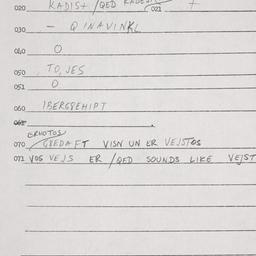 020 KADIST /QED KADESH (021) +
030 - QINAVINKL
040 O
050 TO, JES
051 O
060 IBERGSEHIPT
061 .
GRUOTOS
070 GREDAFT VISN UN ER VEJSTOS
071 VOS VEJS ER /QED SOUNDS LIKE VEJST